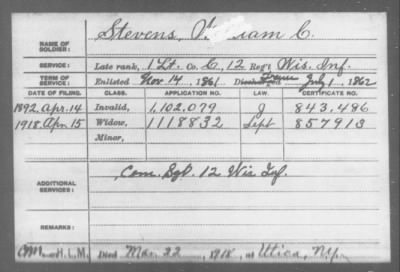 NAME OF SOLDIER: Stevens, William C.
SERVICE: Late rank, 1 Lt. Co. C, 12 Reg't Wis. Inf.
TERM OF SERVICE: Enlisted Nov 14, 1861 July 1, 1862
DATE OF FILING. CLASS. APPLICATION NO. LAW. CERTIFICATE NO.
1892. Apr. 14 Invalid, 1,102,079 J 843,486
1918. Apr. 15 Widow, 1118832 Sept 857913
Minor,
ADDITIONAL SERVICES: Com. Sgt. 12 Wis Inf.
REMARKS:
H.L.M. Died Mar. 22, 1918, at Utica, N.Y.